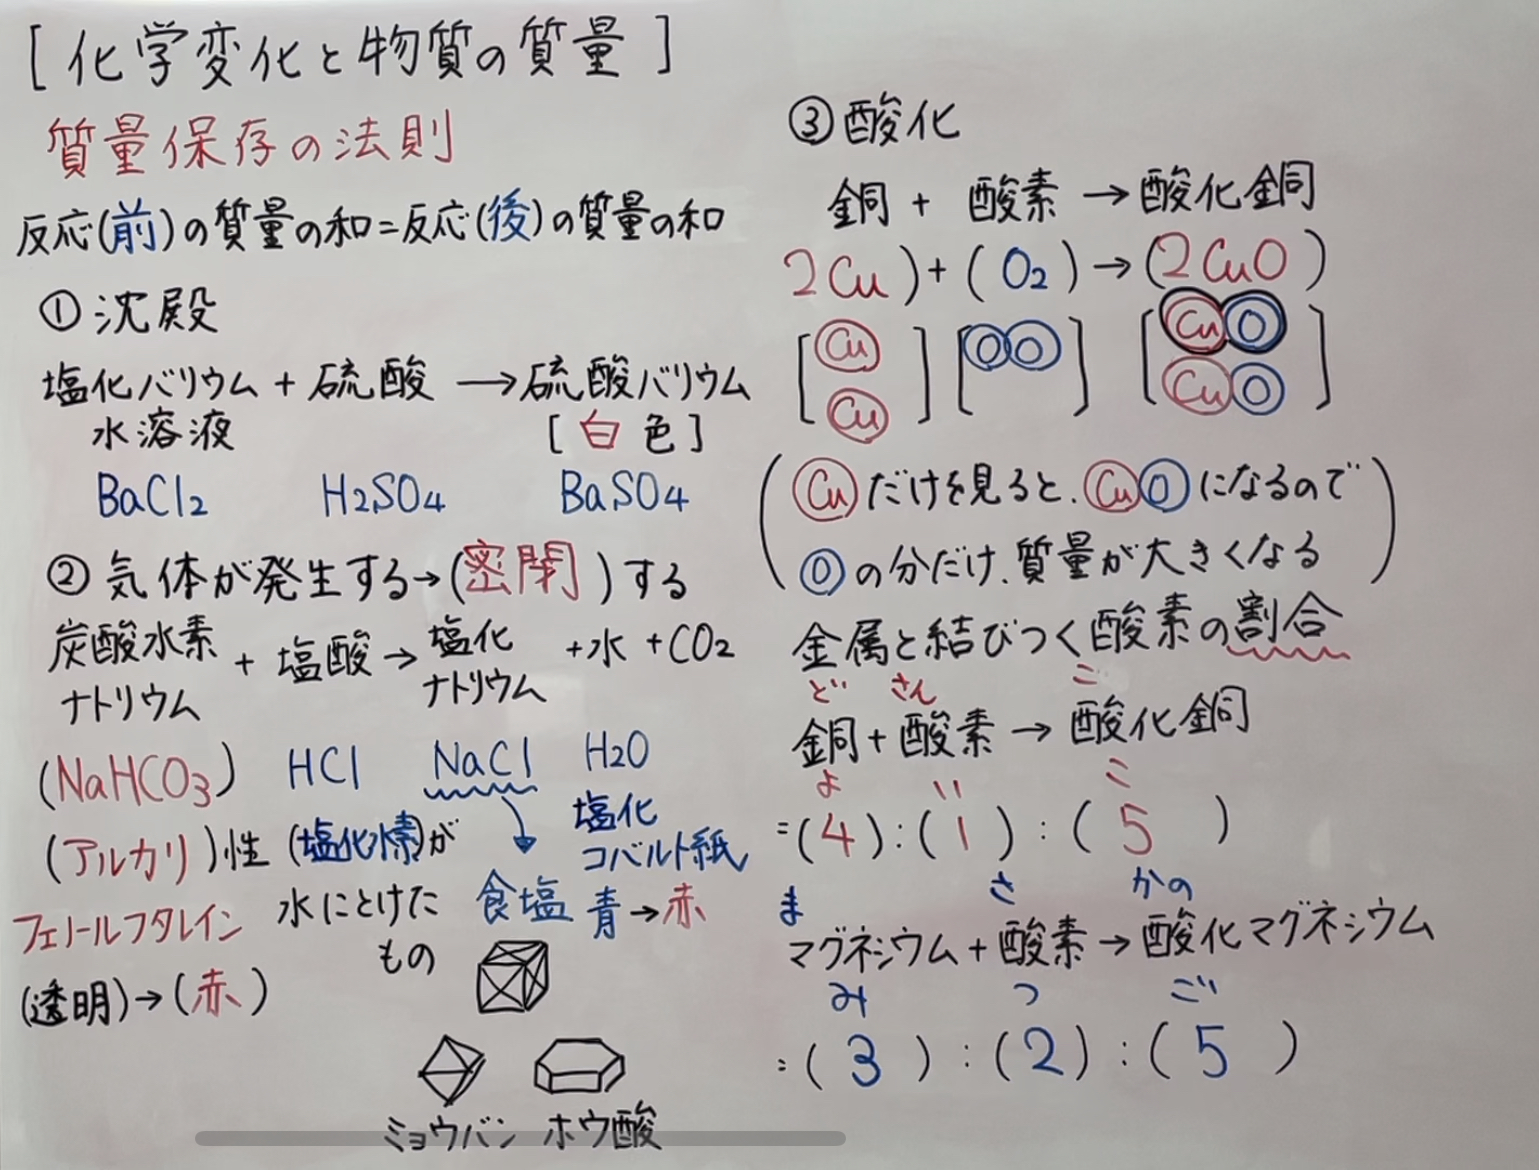 [化学変化と物質の質量]
質量保存の法則
反応(前)の質量の和=反応(後)の質量の和
① 沈殿
塩化バリウム + 硫酸 → 硫酸バリウム
水溶液 [白色]
BaCl2 H2SO4 BaSO4
② 気体が発生する→(密閉)する
炭酸水素 + 塩酸 → 塩化 + 水 + CO2
ナトリウム ナトリウム
(NaHCO3) HCl NaCl H2O
(アルカリ)性 (塩化水素)が 塩化
コバルト紙
フェノールフタレイン 水にとけた 食塩 青→赤
もの
(透明)→(赤)
ミョウバン ホウ酸
③ 酸化
銅 + 酸素 → 酸化銅
2Cu ) + ( O2 ) → (2CuO )
[Cu ] [OO ] [CuO ]
Cu CuO
(Cuだけを見ると、CuOになるので
Oの分だけ、質量が大きくなる)
金属と結びつく酸素の割合
どう さん こ
銅 + 酸素 → 酸化銅
よ い こ
=(4):(1):(5)
ま さ かの
マグネシウム + 酸素 → 酸化マグネシウム
み つ ご
:(3):(2):(5)